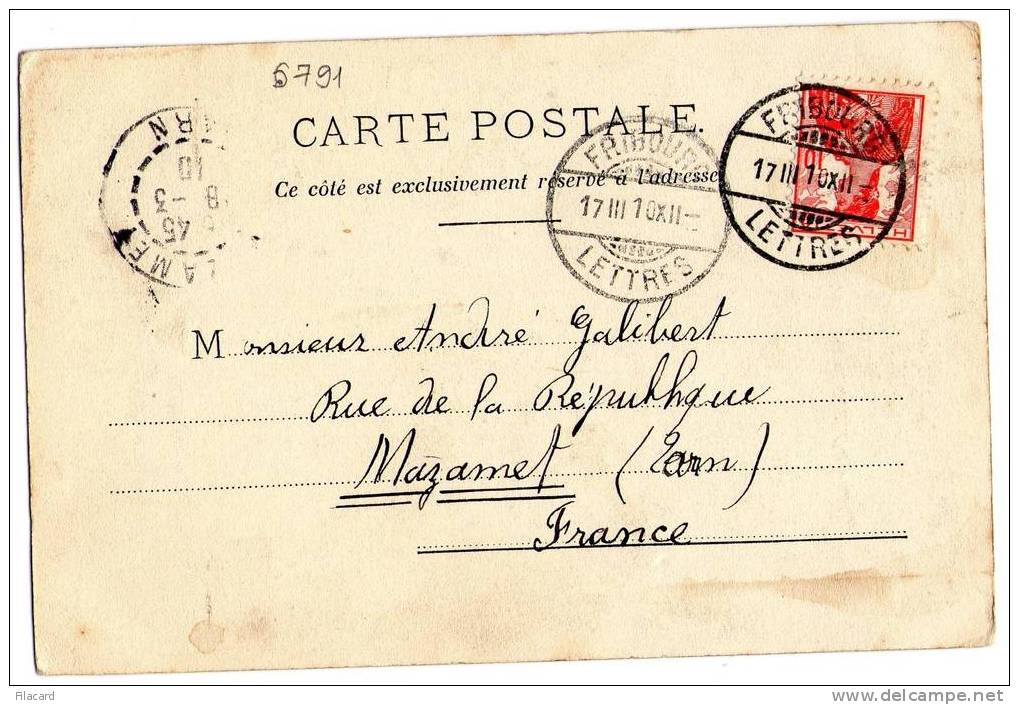 6791
CARTE POSTALE.
Ce côté est exclusivement réservé à l'adresse
FRIBOURG
17 III 10 XII-
LETTRES
FRIBOURG
17 III 10 XII-
LETTRES
HELV
Monsieur André Galibert
Rue de la République
Mazamet (Tarn)
France
filacard
www.delcampe.net